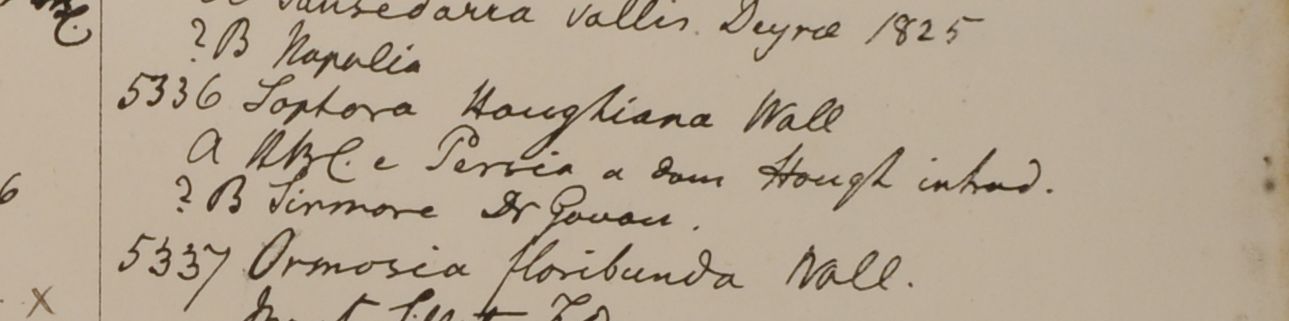 vallis. Deyræ 1825
? B Napalia
5336 Sophora Houghiana Wall
A HBC. e Persia a dom Hough introd.
? B Sirmore Dr Govan.
5337 Ormosia floribunda Wall.
6
X